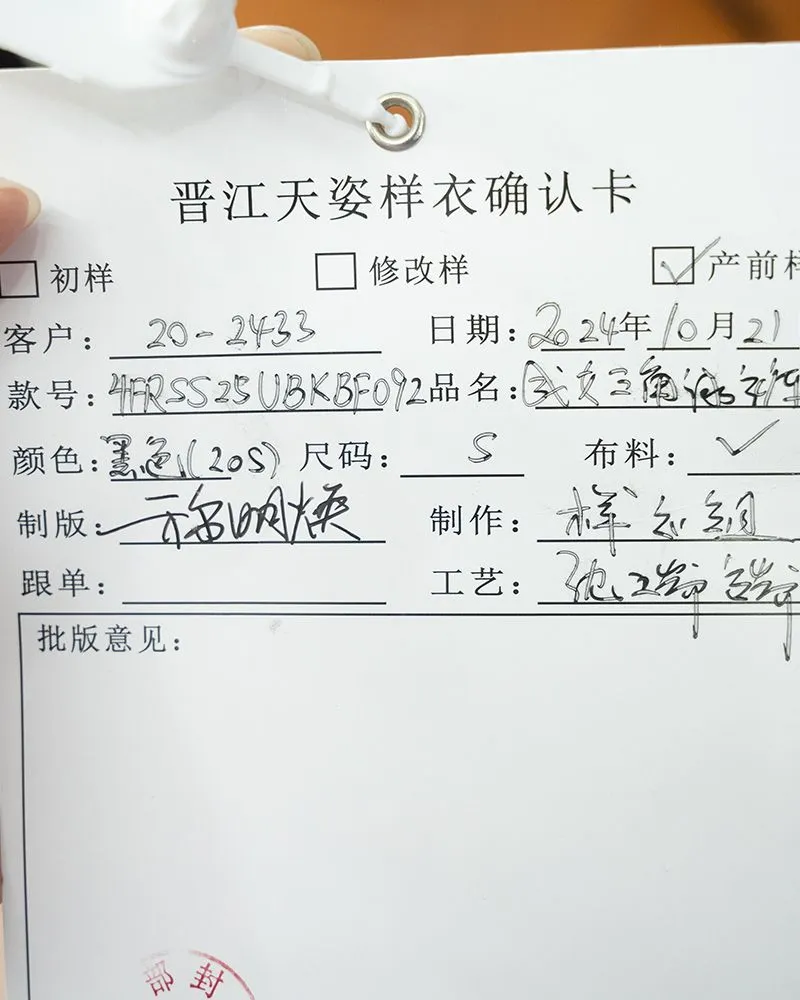 晋江天姿样衣确认卡
初样 修改样 产前样
客户: 20-2433 日期: 2024年10月21
款号: 4FRSS25UBKBF092 品名: 三角
颜色: 黑色(20S) 尺码: S 布料: ✓
制版: 制作: 样衣组
跟单: 工艺:
批版意见:
部封